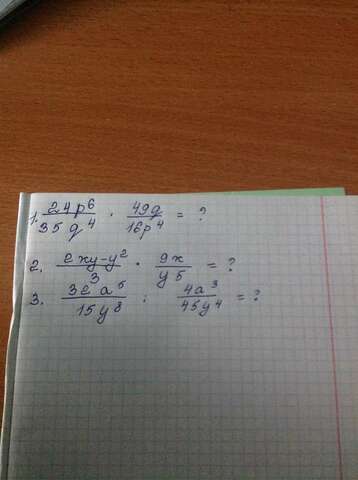 1. 24p⁶/35q⁴ · 49q/16p⁴ = ?
2. (exy-y²)/3 · 9x/y⁵ = ?
3. 3ea⁵/15y⁸ : 4a³/45y⁴ = ?